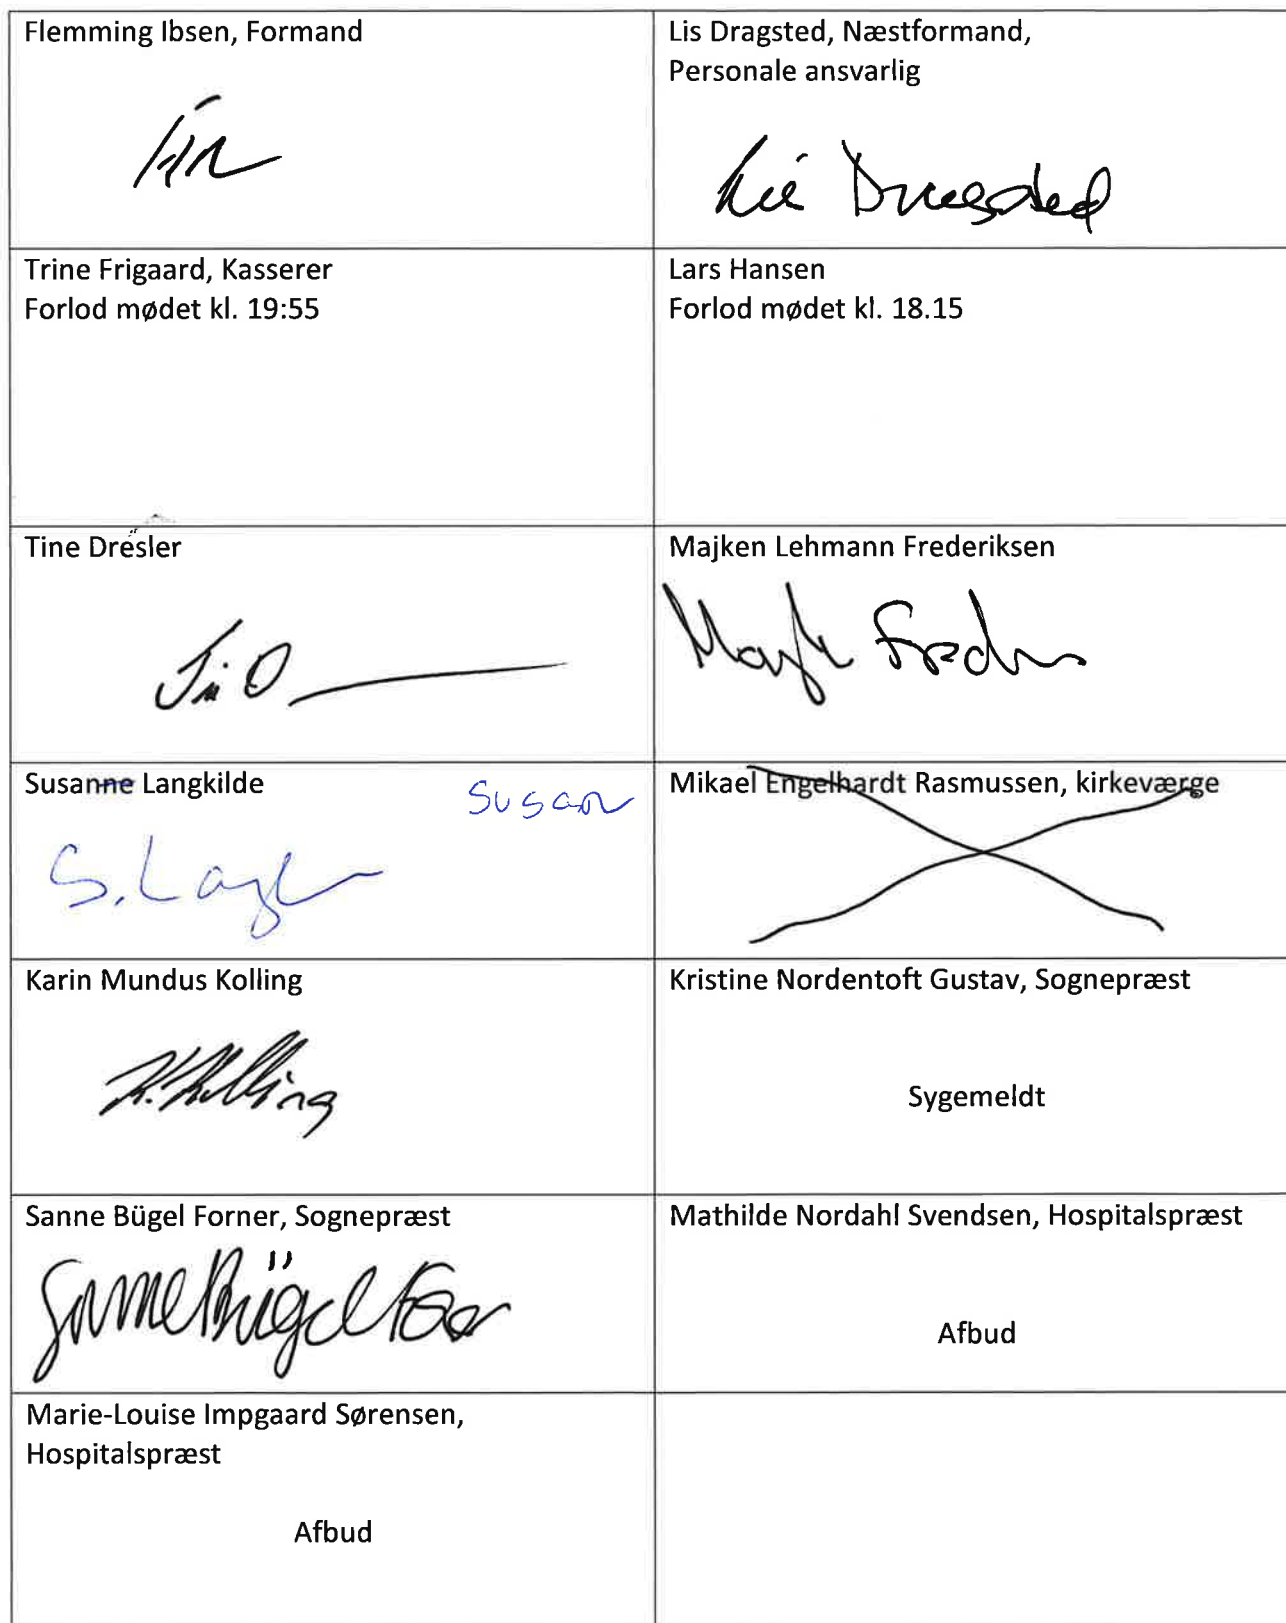 Flemming Ibsen, Formand
Lis Dragsted, Næstformand,
Personale ansvarlig
Lis Dragsted
Trine Frigaard, Kasserer
Forlod mødet kl. 19:55
Lars Hansen
Forlod mødet kl. 18.15
Tine Dresler
Majken Lehmann Frederiksen
Susanne Langkilde
Susan
Mikael Engelhardt Rasmussen, kirkeværge
Karin Mundus Kolling
K. Kolling
Kristine Nordentoft Gustav, Sognepræst
Sygemeldt
Sanne Bügel Forner, Sognepræst
Sanne Bügel
Mathilde Nordahl Svendsen, Hospitalspræst
Afbud
Marie-Louise Impgaard Sørensen,
Hospitalspræst
Afbud